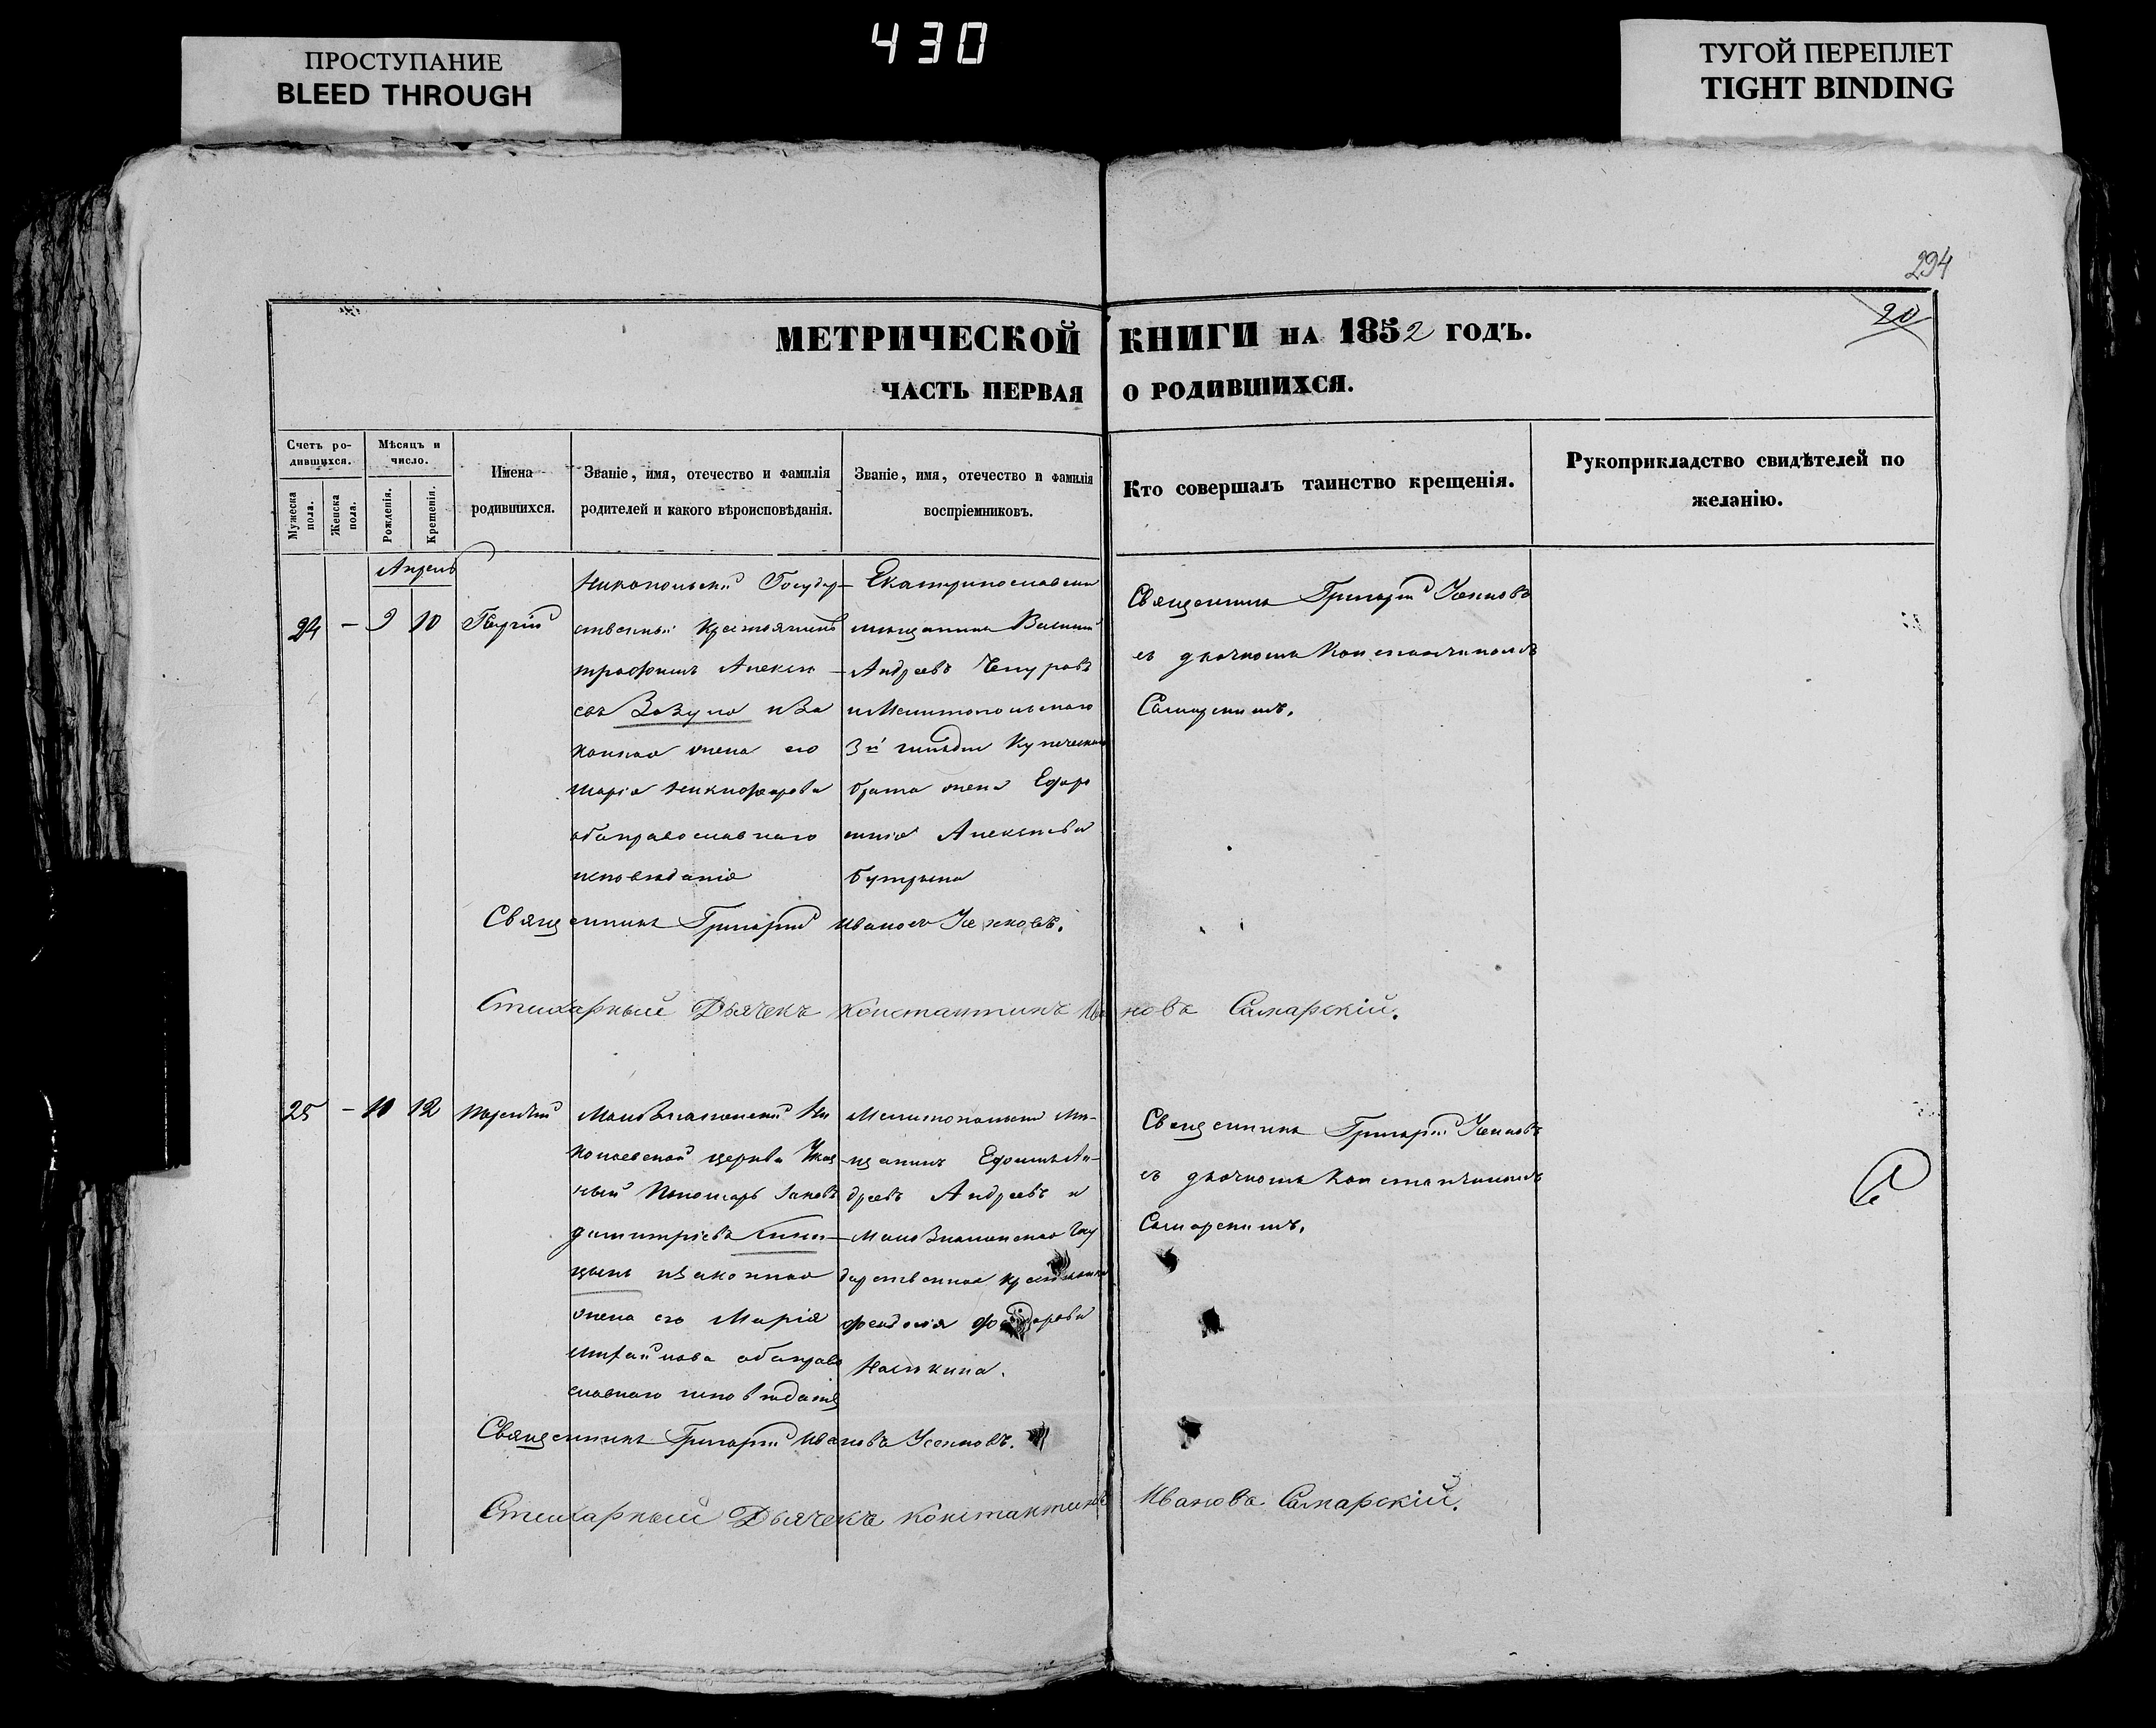 430
ПРОСТУПАНИЕ
BLEED THROUGH
ТУГОЙ ПЕРЕПЛЕТ
TIGHT BINDING
294
20
МЕТРИЧЕСКОЙ КНИГИ НА 1852 ГОДЪ.
ЧАСТЬ ПЕРВАЯ О РОДИВШИХСЯ.
Счетъ ро-
дившихся.
Мужеска пола.
Женска пола.
Мѣсяцъ и
число.
Рожденія.
Крещенія.
Имена
родившихся.
Званіе, имя, отечество и фамилія
родителей и какого вѣроисповѣданія.
Званіе, имя, отечество и фамилія
воспріемниковъ.
Кто совершалъ таинство крещенія.
Рукоприкладство свидѣтелей по
желанію.
Апрель
24 — 9 10
Никопольскій Государ-
ственный Крестьянинъ
трофимъ Алексѣ-
евъ Зозуло и За
конная жена его
Марія Никифорова
оба православнаго
исповѣданія
Екатеринославскій
мещанинъ Василій
Андреевъ
и Мелитопольскаго
3й гильдіи Купеческаго
брата жена
Алексѣева
Священникъ Григорій
съ дьячкомъ Константиномъ
Самарскимъ.
Священникъ Григорій Ивановъ
Стихарный Дьячекъ Константинъ Ивановъ Самарскій.
25 — 10 12
Мало Знаменской Ни
колаевской церкви Указ-
ный Пономарь Іаковъ
Димитріевъ
и законная
жена его Марія
Михайлова оба право
славнаго исповѣданія
Мелитопольскій Мѣ-
щанинъ Ефимъ Ан-
дреевъ Андреевъ и
Мало Знаменская Госу
дарственная крестьянка
Феодосія Феодорова
Священникъ Григорій
съ дьячкомъ Константиномъ
Самарскимъ.
Священникъ Григорій Ивановъ
Стихарный Дьячекъ Константинъ Ивановъ Самарскій.